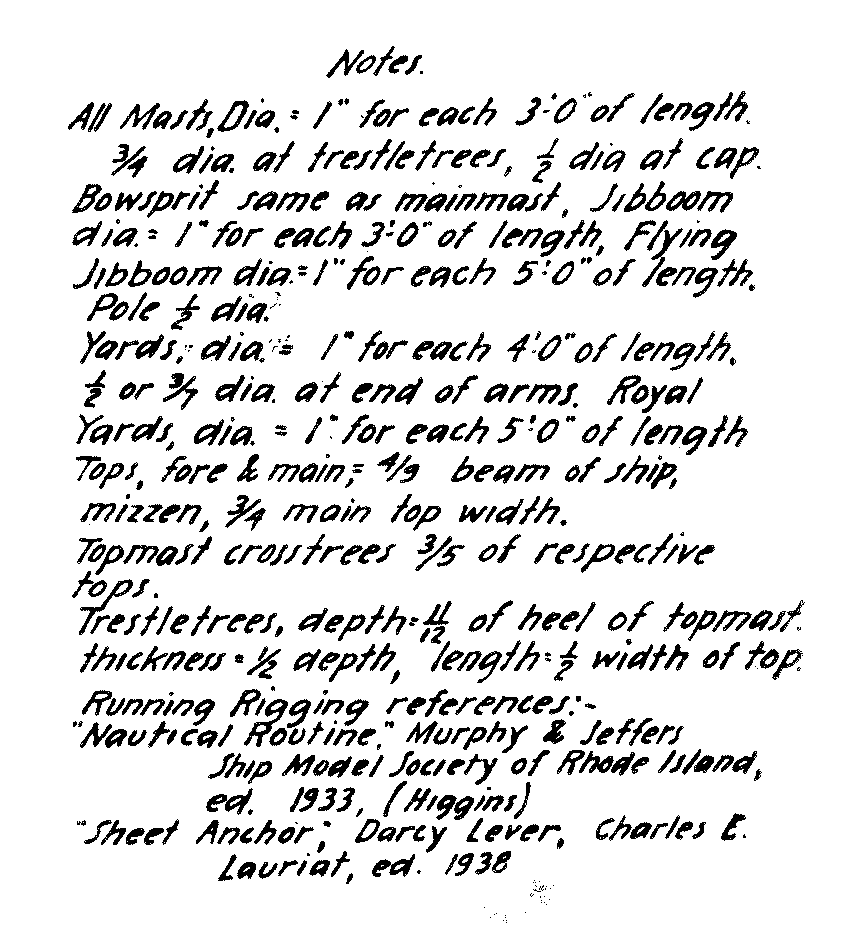 Notes.
All Masts, Dia. = 1" for each 3'-0" of length.
3/4 dia. at trestletrees, 1/2 dia at cap.
Bowsprit same as mainmast, Jibboom
dia. = 1" for each 3'-0" of length, Flying
Jibboom dia. = 1" for each 5'-0" of length.
Pole 1/2 dia.
Yards, dia. = 1" for each 4'-0" of length.
1/2 or 3/7 dia. at end of arms. Royal
Yards, dia. = 1" for each 5'-0" of length
Tops, fore & main, = 4/9 beam of ship,
mizzen, 3/4 main top width.
Topmast crosstrees 3/5 of respective
tops.
Trestletrees, depth = 11/12 of heel of topmast.
thickness = 1/2 depth, length = 1/2 width of top.
Running Rigging references:-
"Nautical Routine," Murphy & Jeffers
Ship Model Society of Rhode Island,
ed. 1933, (Higgins)
"Sheet Anchor," Darcy Lever, Charles E.
Lauriat, ed. 1938